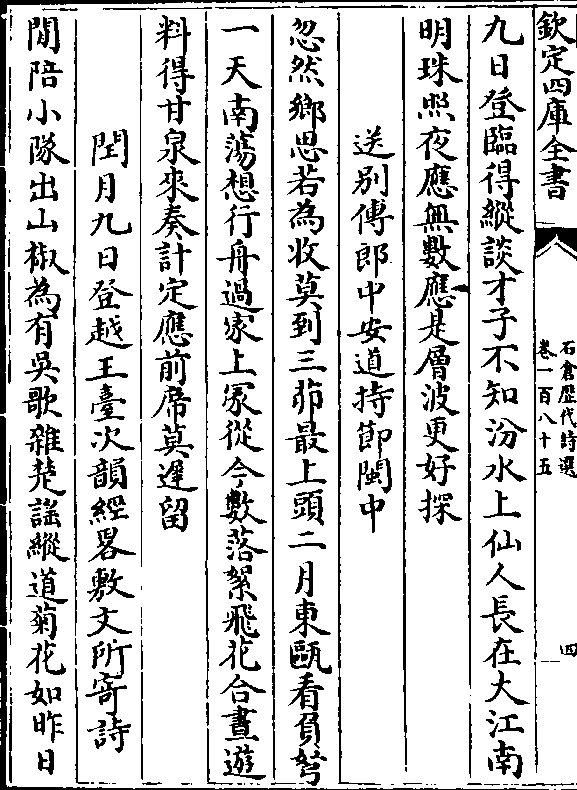 欽定四庫全書
石倉歷代詩選
卷一百八十五
四
九日登臨得縱談才子不知汾水上仙人長在大江南
明珠照夜應無數應是層波更好探
送別傅郎中安道持節閩中
忽然鄉思若為收莫到三茆最上頭二月東甌看負弩
一天南蕩想行舟過家上冢從今數落絮飛花合晝遊
料得甘泉來奏計定應前席莫遲留
閏月九日登越王臺次韻經畧敷文所寄詩
閒陪小隊出山椒為有吳歌雜楚謡縱道菊花如昨日